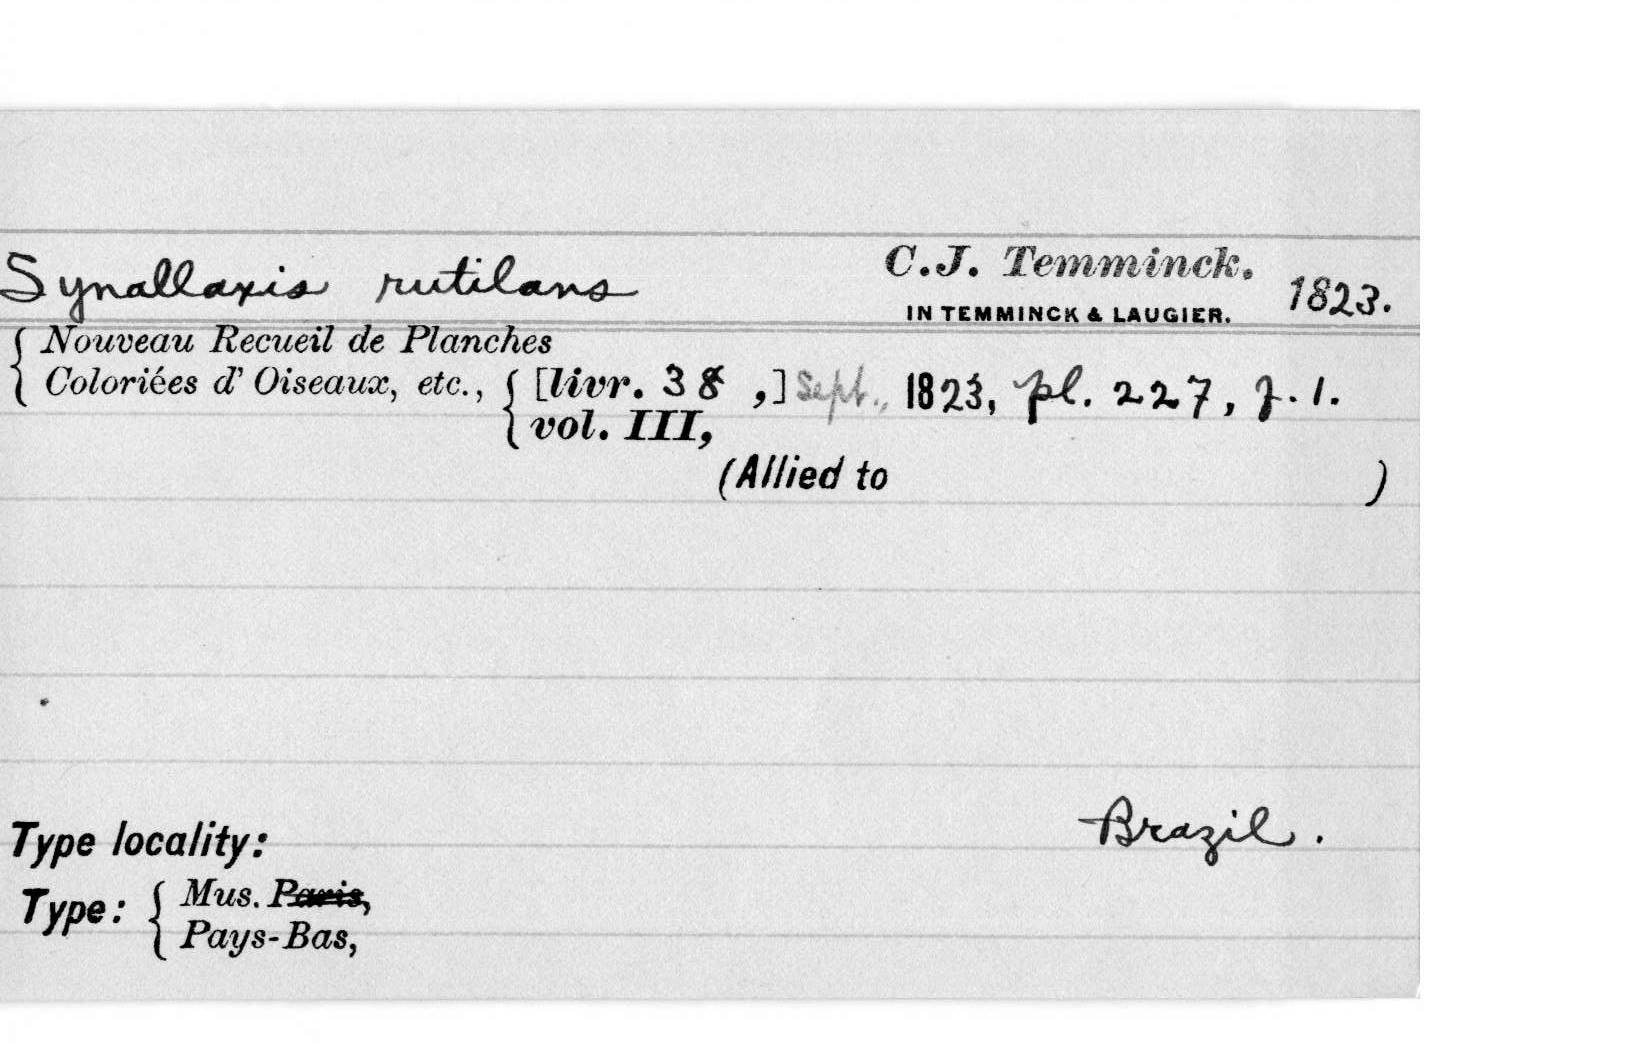 Synallaxis rutilans C.J. Temminck. 1823.
IN TEMMINCK & LAUGIER.
{ Nouveau Recueil de Planches
Coloriées d' Oiseaux, etc., { [livr. 38 ,] Sept., 1823, pl. 227, f. 1.
vol. III,
(Allied to )
Type locality: Brazil.
Type: { Mus. Paris,
Pays-Bas,